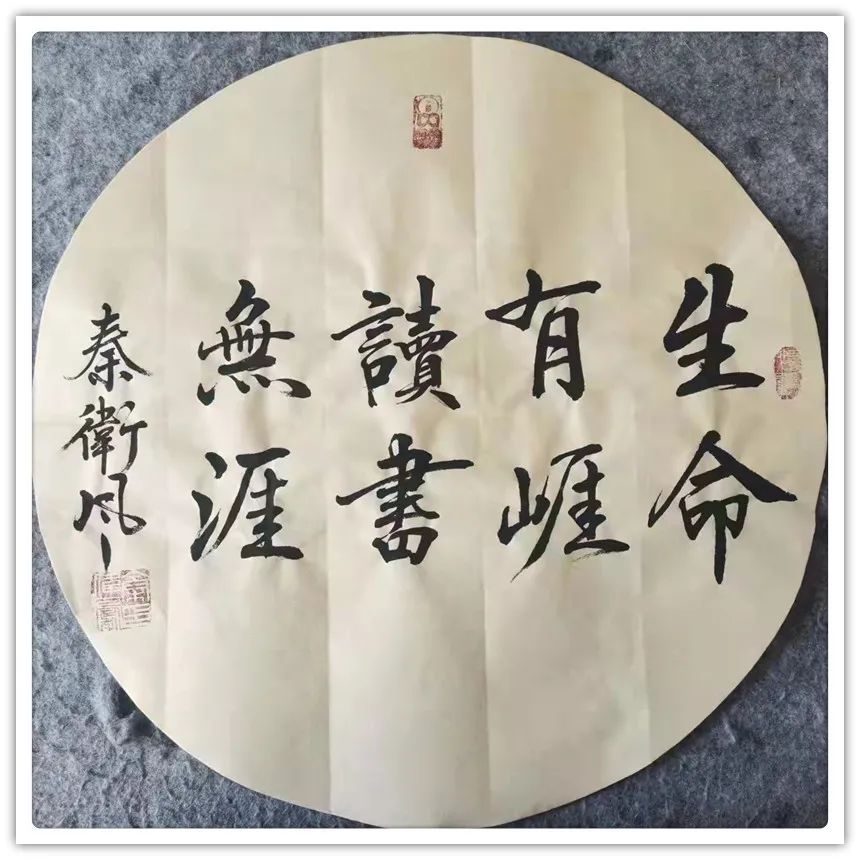 生命
有崕
讀書
無涯
秦衛风